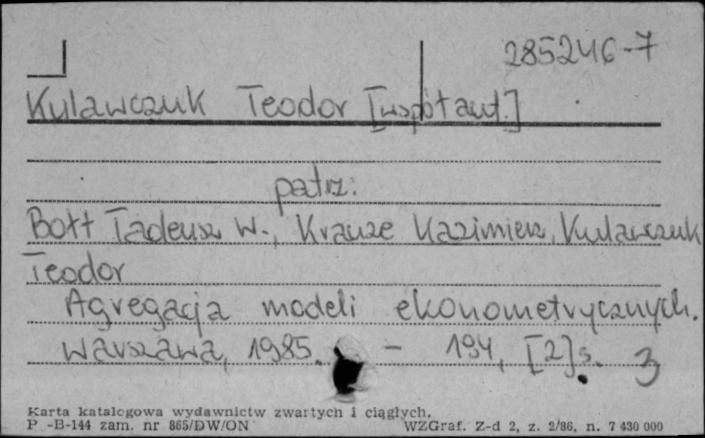 285246-7
Kulawczuk Teodor [współaut.]
patrz:
Bołt Tadeusz W., Krauze Kazimierz, Kulawczuk
Teodor
Agregacja modeli ekonometrycznych.
Warszawa, 1985. - 194, [2] s. 3
Karta katalogowa wydawnictw zwartych i ciągłych.
P -B-144 zam. nr 865/DW/ON WZGraf. Z-d 2, z. 2/86, n. 7 430 000